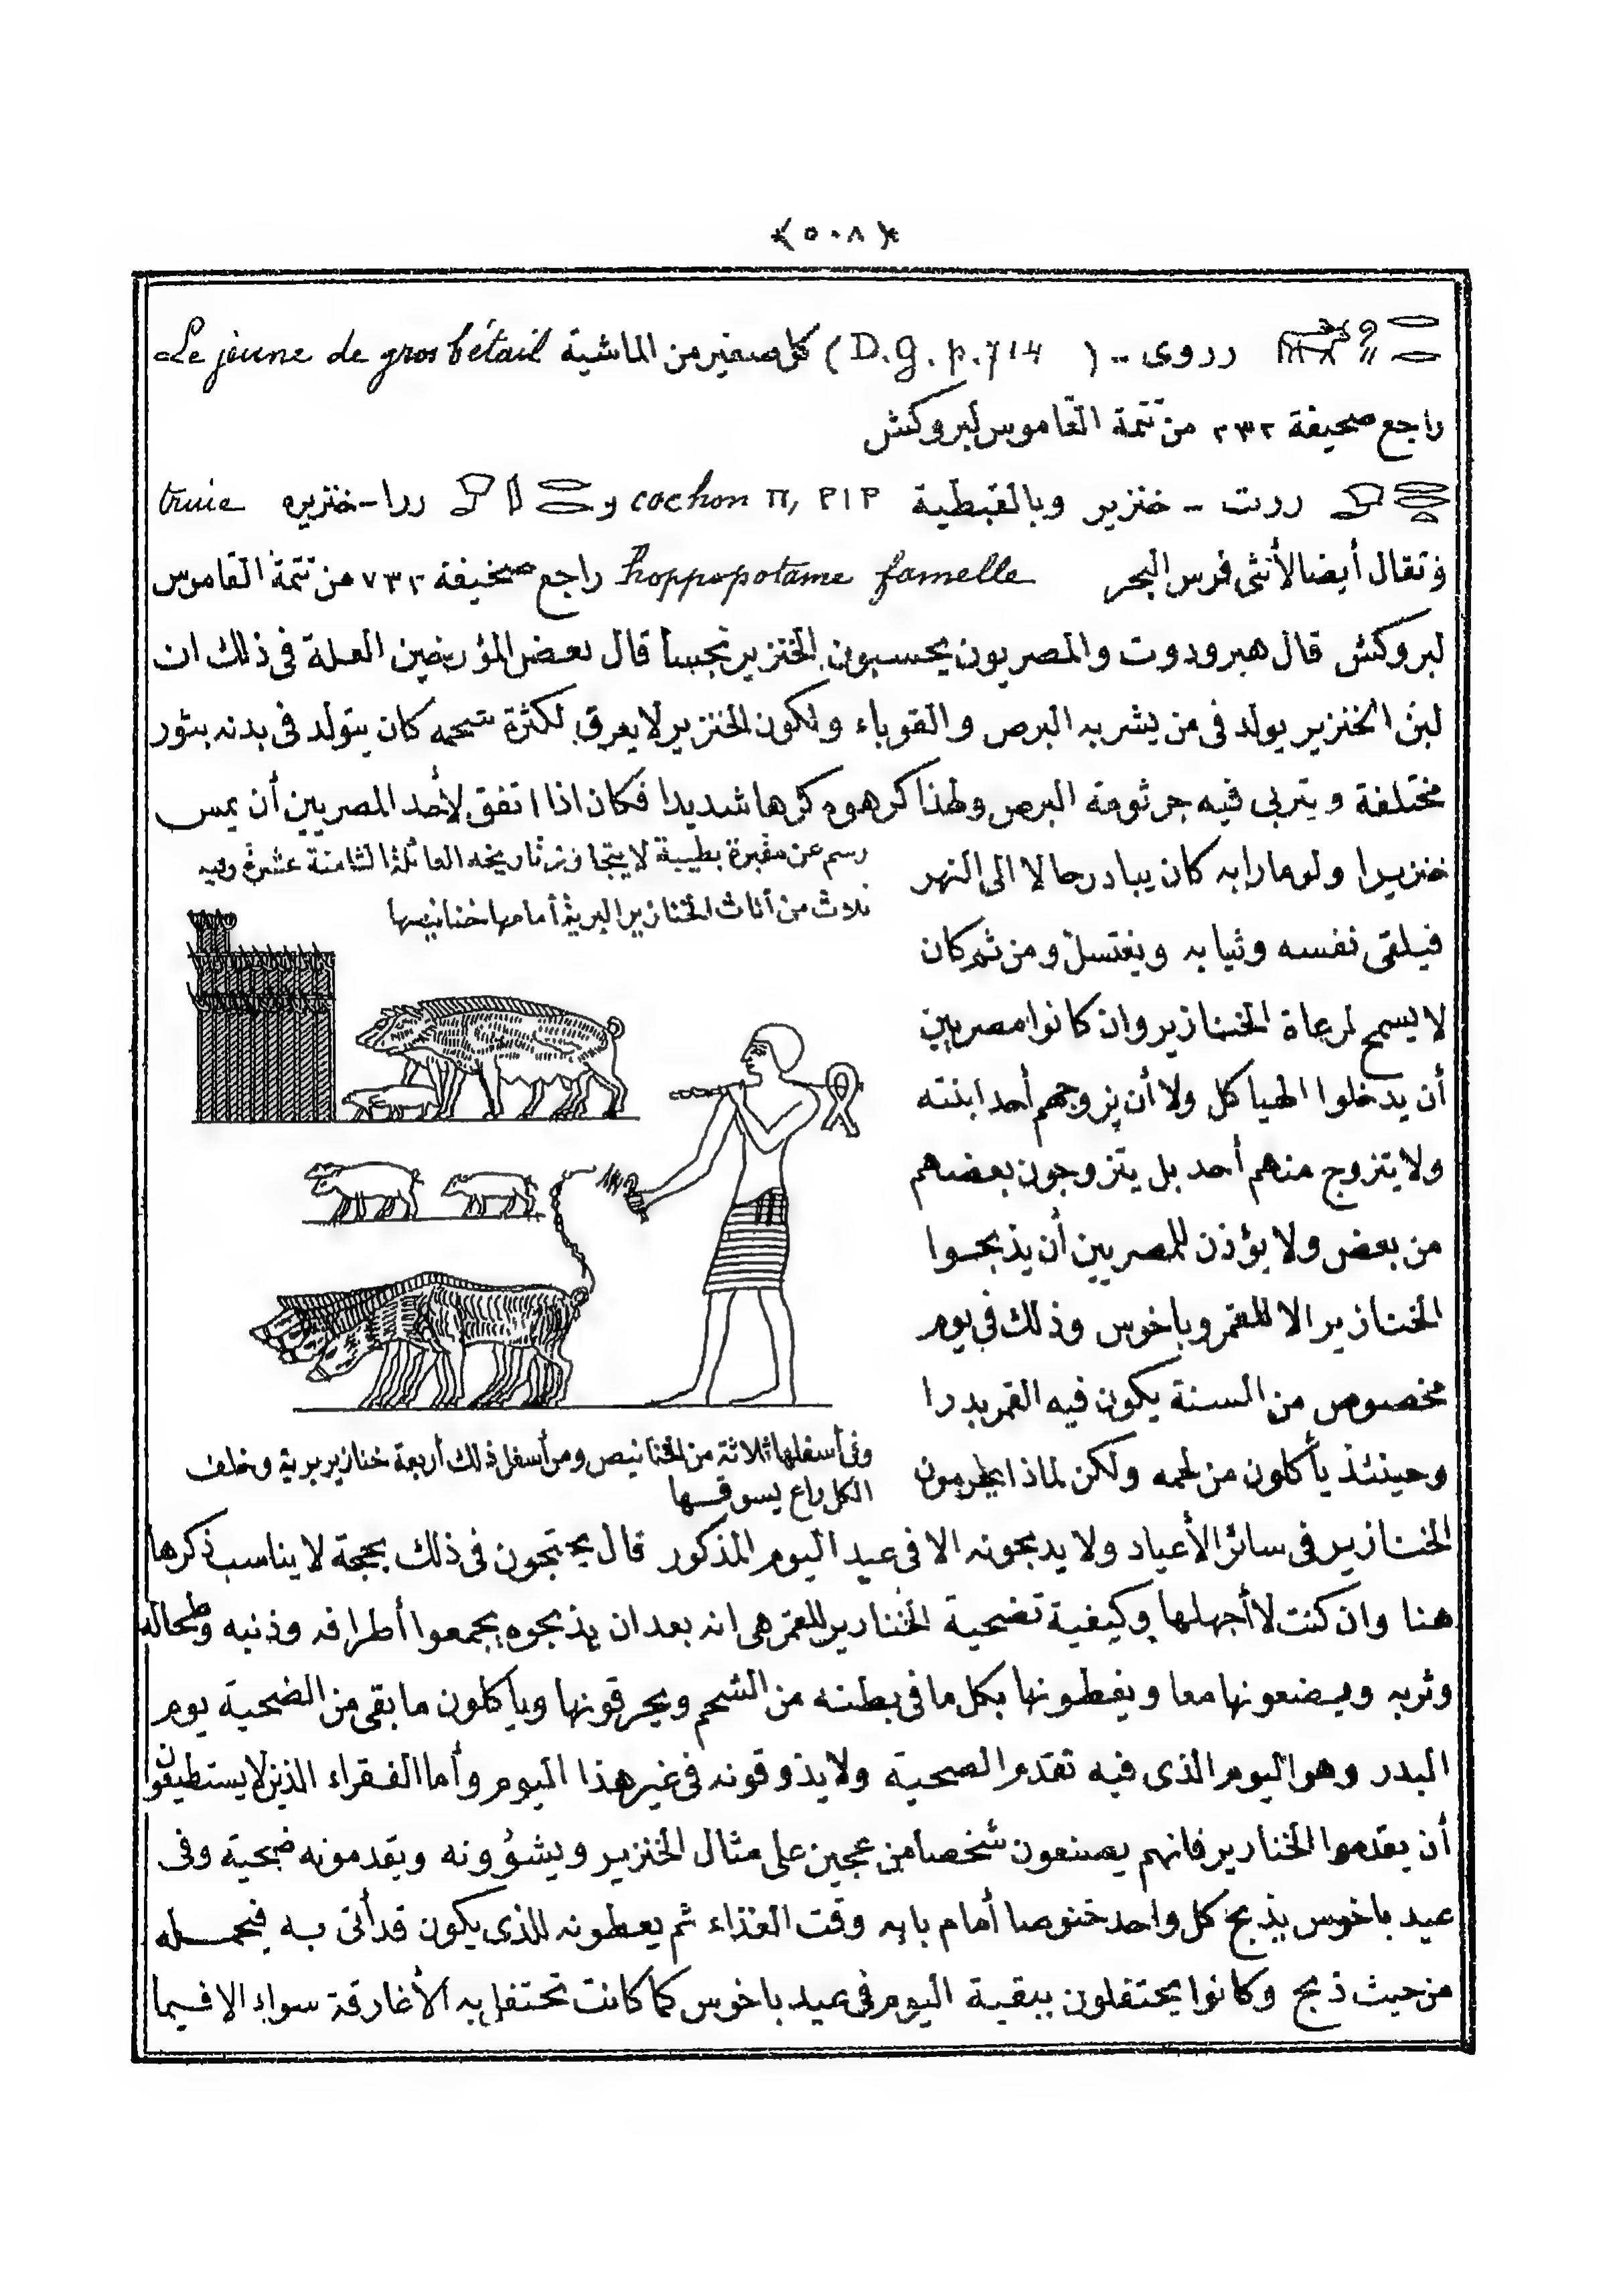 ﴿٥٠٨﴾
رروى - (D.g. p. 714) كل صغير من الماشية Le jeune de gros bétail
راجع صحيفة ٧٣٢ من تتمة القاموس لبروكش
ررت - خنزير وبالقبطية cochon π, ριρ و ررا - خنزيره truie
وتقال أيضا لأنثى فرس البحر hoppopotame famelle راجع صحيفة ٧٣٢ من تتمة القاموس
لبروكش قال هيرودوت والمصريون يحسبون الخنزير نجسا قال بعض المؤرخين العلة فى ذلك ان
لبن الخنزير يولد فى من يشربه البرص والقوباء ولكون الخنزير لا يعرق لكثرة شحمه كان يتولد فى بدنه بثور
مختلفة ويتربى فيه جرثومة البرص ولهذا كرهوه كرها شديدا فكان اذا اتفق لأحد المصريين أن يمس
خنزيرا ولو مارا به كان يبادر حالا الى النهر
فيلقى نفسه وثيابه ويغتسل ومن ثم كان
لا يسمح لرعاة الخنازير وان كانوا مصريين
أن يدخلوا الهياكل ولا أن يزوجهم أحد ابنته
ولا يتزوج منهم أحد بل يتزوجون بعضهم
من بعض ولا يؤذن للمصريين أن يذبحوا
الخنازير الا للقمر وباخوس وذلك فى يوم
مخصوص من السنة يكون فيه القمر بدرا
وحينئذ يأكلون من لحمه ولكن لماذا يحرمون
رسم عن مقبرة بطيبة لا يتجاوز تاريخه العائلة الثامنة عشرة وفيه
ثلاث من أناث الخنازير البرية أمامها خنانيصها
وفى أسفلها ثلاثة من الخنانيص ومن أسفل ذلك أربعة خنازير برية وخلف
الكل راع يسوقها
الخنازير فى سائر الأعياد ولا يذبحونه الا فى عيد اليوم المذكور قال يحتجون فى ذلك بحجة لا يناسب ذكرها
هنا وان كنت لا أجهلها وكيفية تضحية الخنازير للقمر هى انه بعد ان يذبحوه يجمعوا أطرافه وذنبه وطحاله
وثربه ويضعونها معا ويغطونها بكل ما فى بطنه من الشحم ويحرقونها ويأكلون ما بقى من الضحية يوم
البدر وهو اليوم الذى فيه تقدم الضحية ولا يذوقونه فى غير هذا اليوم وأما الفقراء الذين لا يستطيعون
أن يقدموا الخنازير فانهم يصنعون شخصا من عجين على مثال الخنزير ويشوونه ويقدمونه ضحية وفى
عيد باخوس يذبح كل واحد خنوصا أمام بابه وقت الغذاء ثم يعطونه للذى يكون قد أتى به فيحمله
من حيث ذبح وكانوا يحتفلون ببقية اليوم فى عيد باخوس كما كانت تحتفل به الأغارقة سواء الا فيما